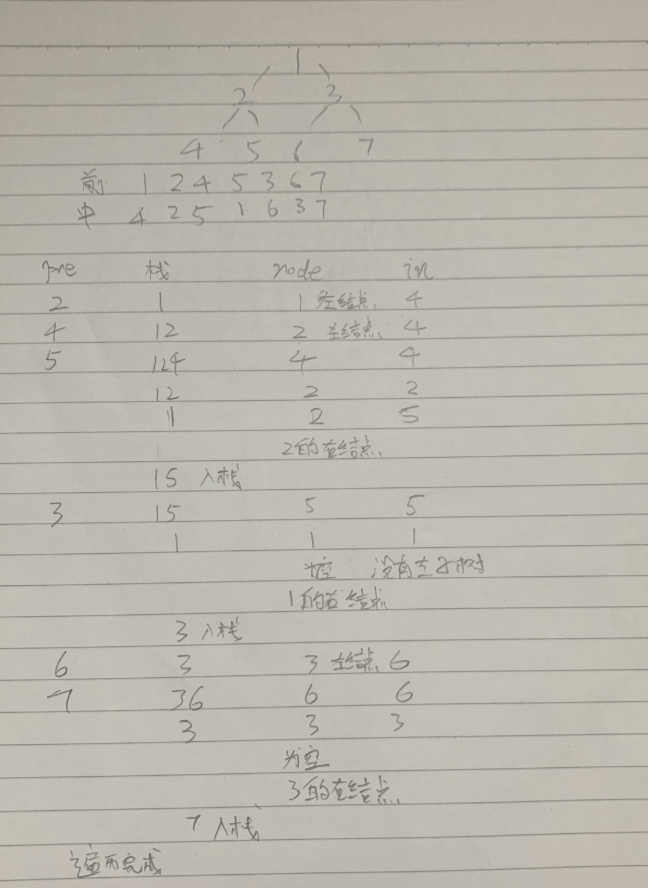 1
2 3
4 5 6 7
前 1 2 4 5 3 6 7
中 4 2 5 1 6 3 7
pre 栈 node in
2 1 1 左结点 4
4 12 2 左结点 4
5 124 4 4
12 2 2
1 2 5
2的右结点
15 入栈
3 15 5 5
1 1 1
栈空 没有左子树
1的右结点
3 入栈
6 3 3 左结点 6
7 36 6 6
3 3 3
为空
3的右结点
7 入栈
遍历完成